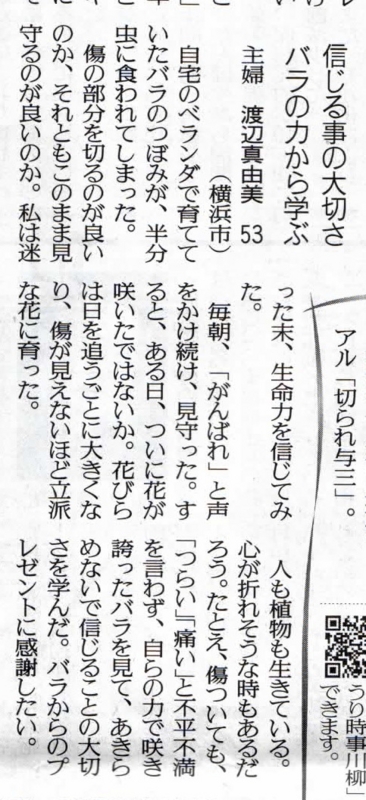 信じる事の大切さ
バラの力から学ぶ
主婦　渡辺真由美　53
（横浜市）
自宅のベランダで育てて
いたバラのつぼみが、半分
虫に食われてしまった。
傷の部分を切るのが良い
のか、それともこのまま見
守るのが良いのか。私は迷
った末、生命力を信じてみ
た。
毎朝、「がんばれ」と声
をかけ続け、見守った。す
ると、ある日、ついに花が
咲いたではないか。花びら
は日を追うごとに大きくな
り、傷が見えないほど立派
な花に育った。
人も植物も生きている。
心が折れそうな時もあるだ
ろう。たとえ、傷ついても、
「つらい」「痛い」と不平不満
を言わず、自らの力で咲き
誇ったバラを見て、あきら
めないで信じることの大切
さを学んだ。バラからのプ
レゼントに感謝したい。
アル「切られ与三」。
うり時事川柳」
できます。